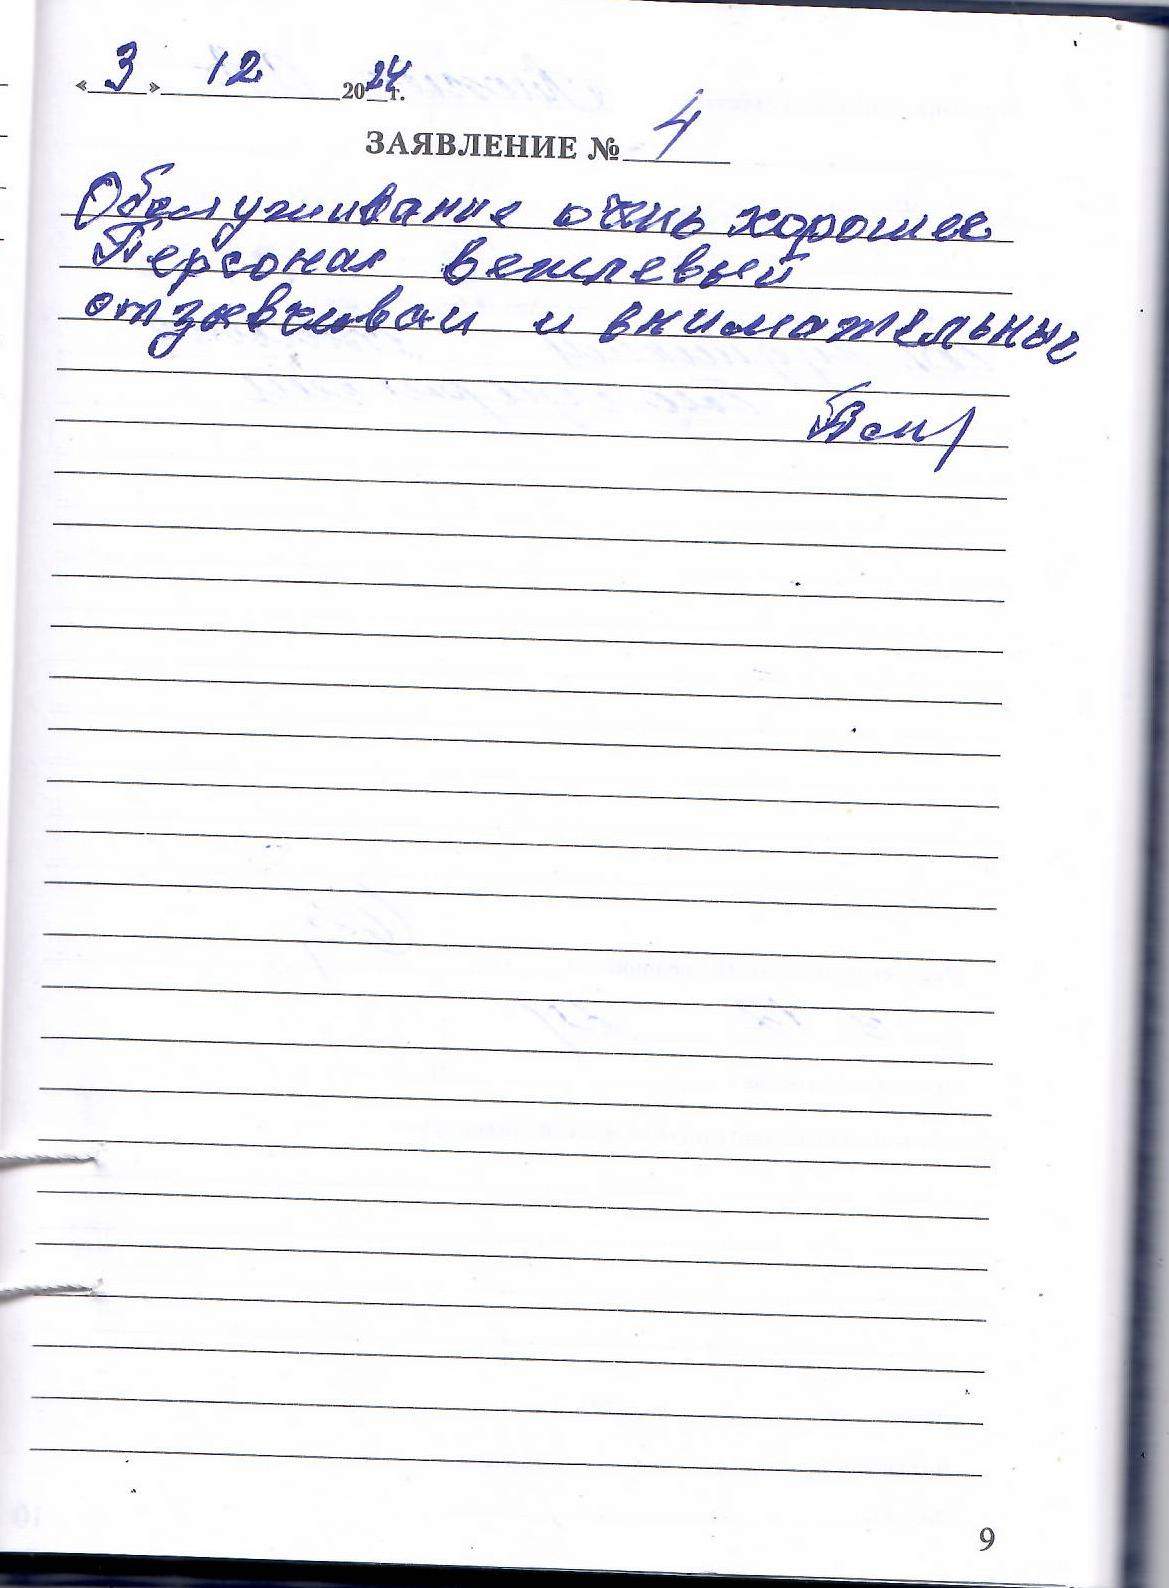 «3» 12 2024г.
ЗАЯВЛЕНИЕ № 4
Обслуживание очень хорошее
Персонал вежлевый
отзывчивый и внимательные
9